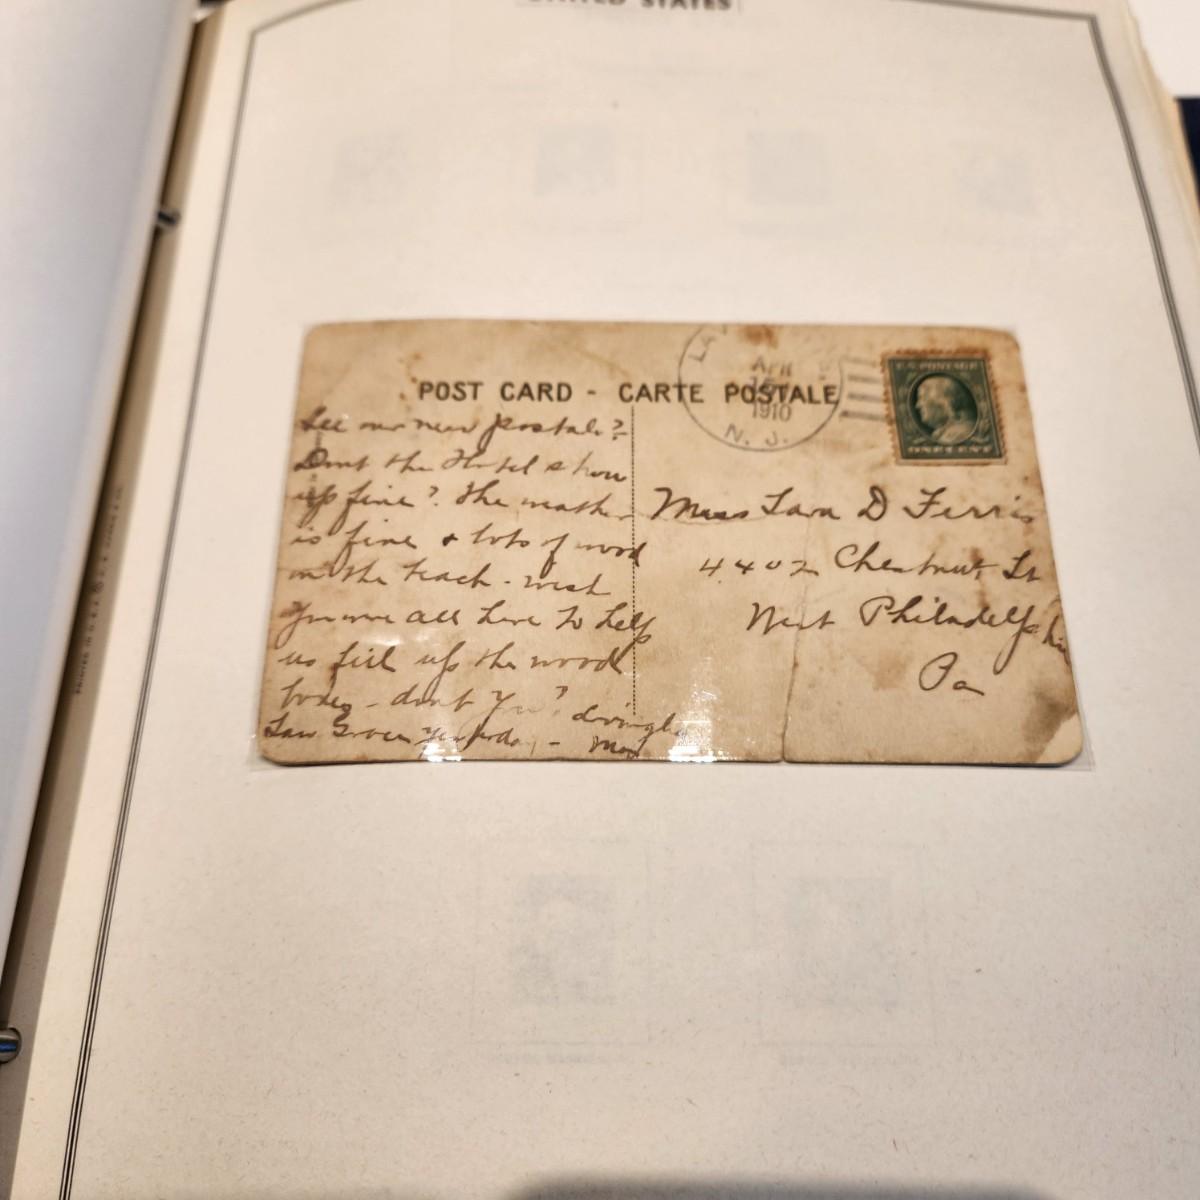 UNITED STATES
POST CARD - CARTE POSTALE
April
1910
N. J.
U.S. POSTAGE
ONE CENT
See our new postal?
Dont the Hotel show
up fine? The weather
is fine & lots of wood
on the beach - wish
You were all here to help
us fill up the wood
boxes - dont You?
yesterday -
Miss D Ferris
4402 Chestnut St
West Philadelphia
Pa